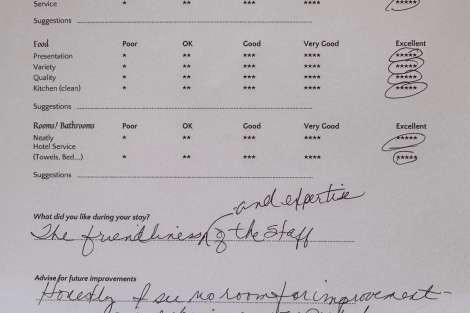 Service * ** *** **** *****
Suggestions
Food Poor OK Good Very Good Excellent
Presentation * ** *** **** *****
Variety * ** *** **** *****
Quality * ** *** **** *****
Kitchen (clean) * ** *** **** *****
Suggestions
Rooms/ Bathrooms Poor OK Good Very Good Excellent
Neatly * ** *** **** *****
Hotel Service
(Towels, Bed...) * ** *** **** *****
Suggestions
and expertise
What did you like during your stay?
The friendliness of the Staff
Advise for future improvements
Honestly I see no room for improvement -